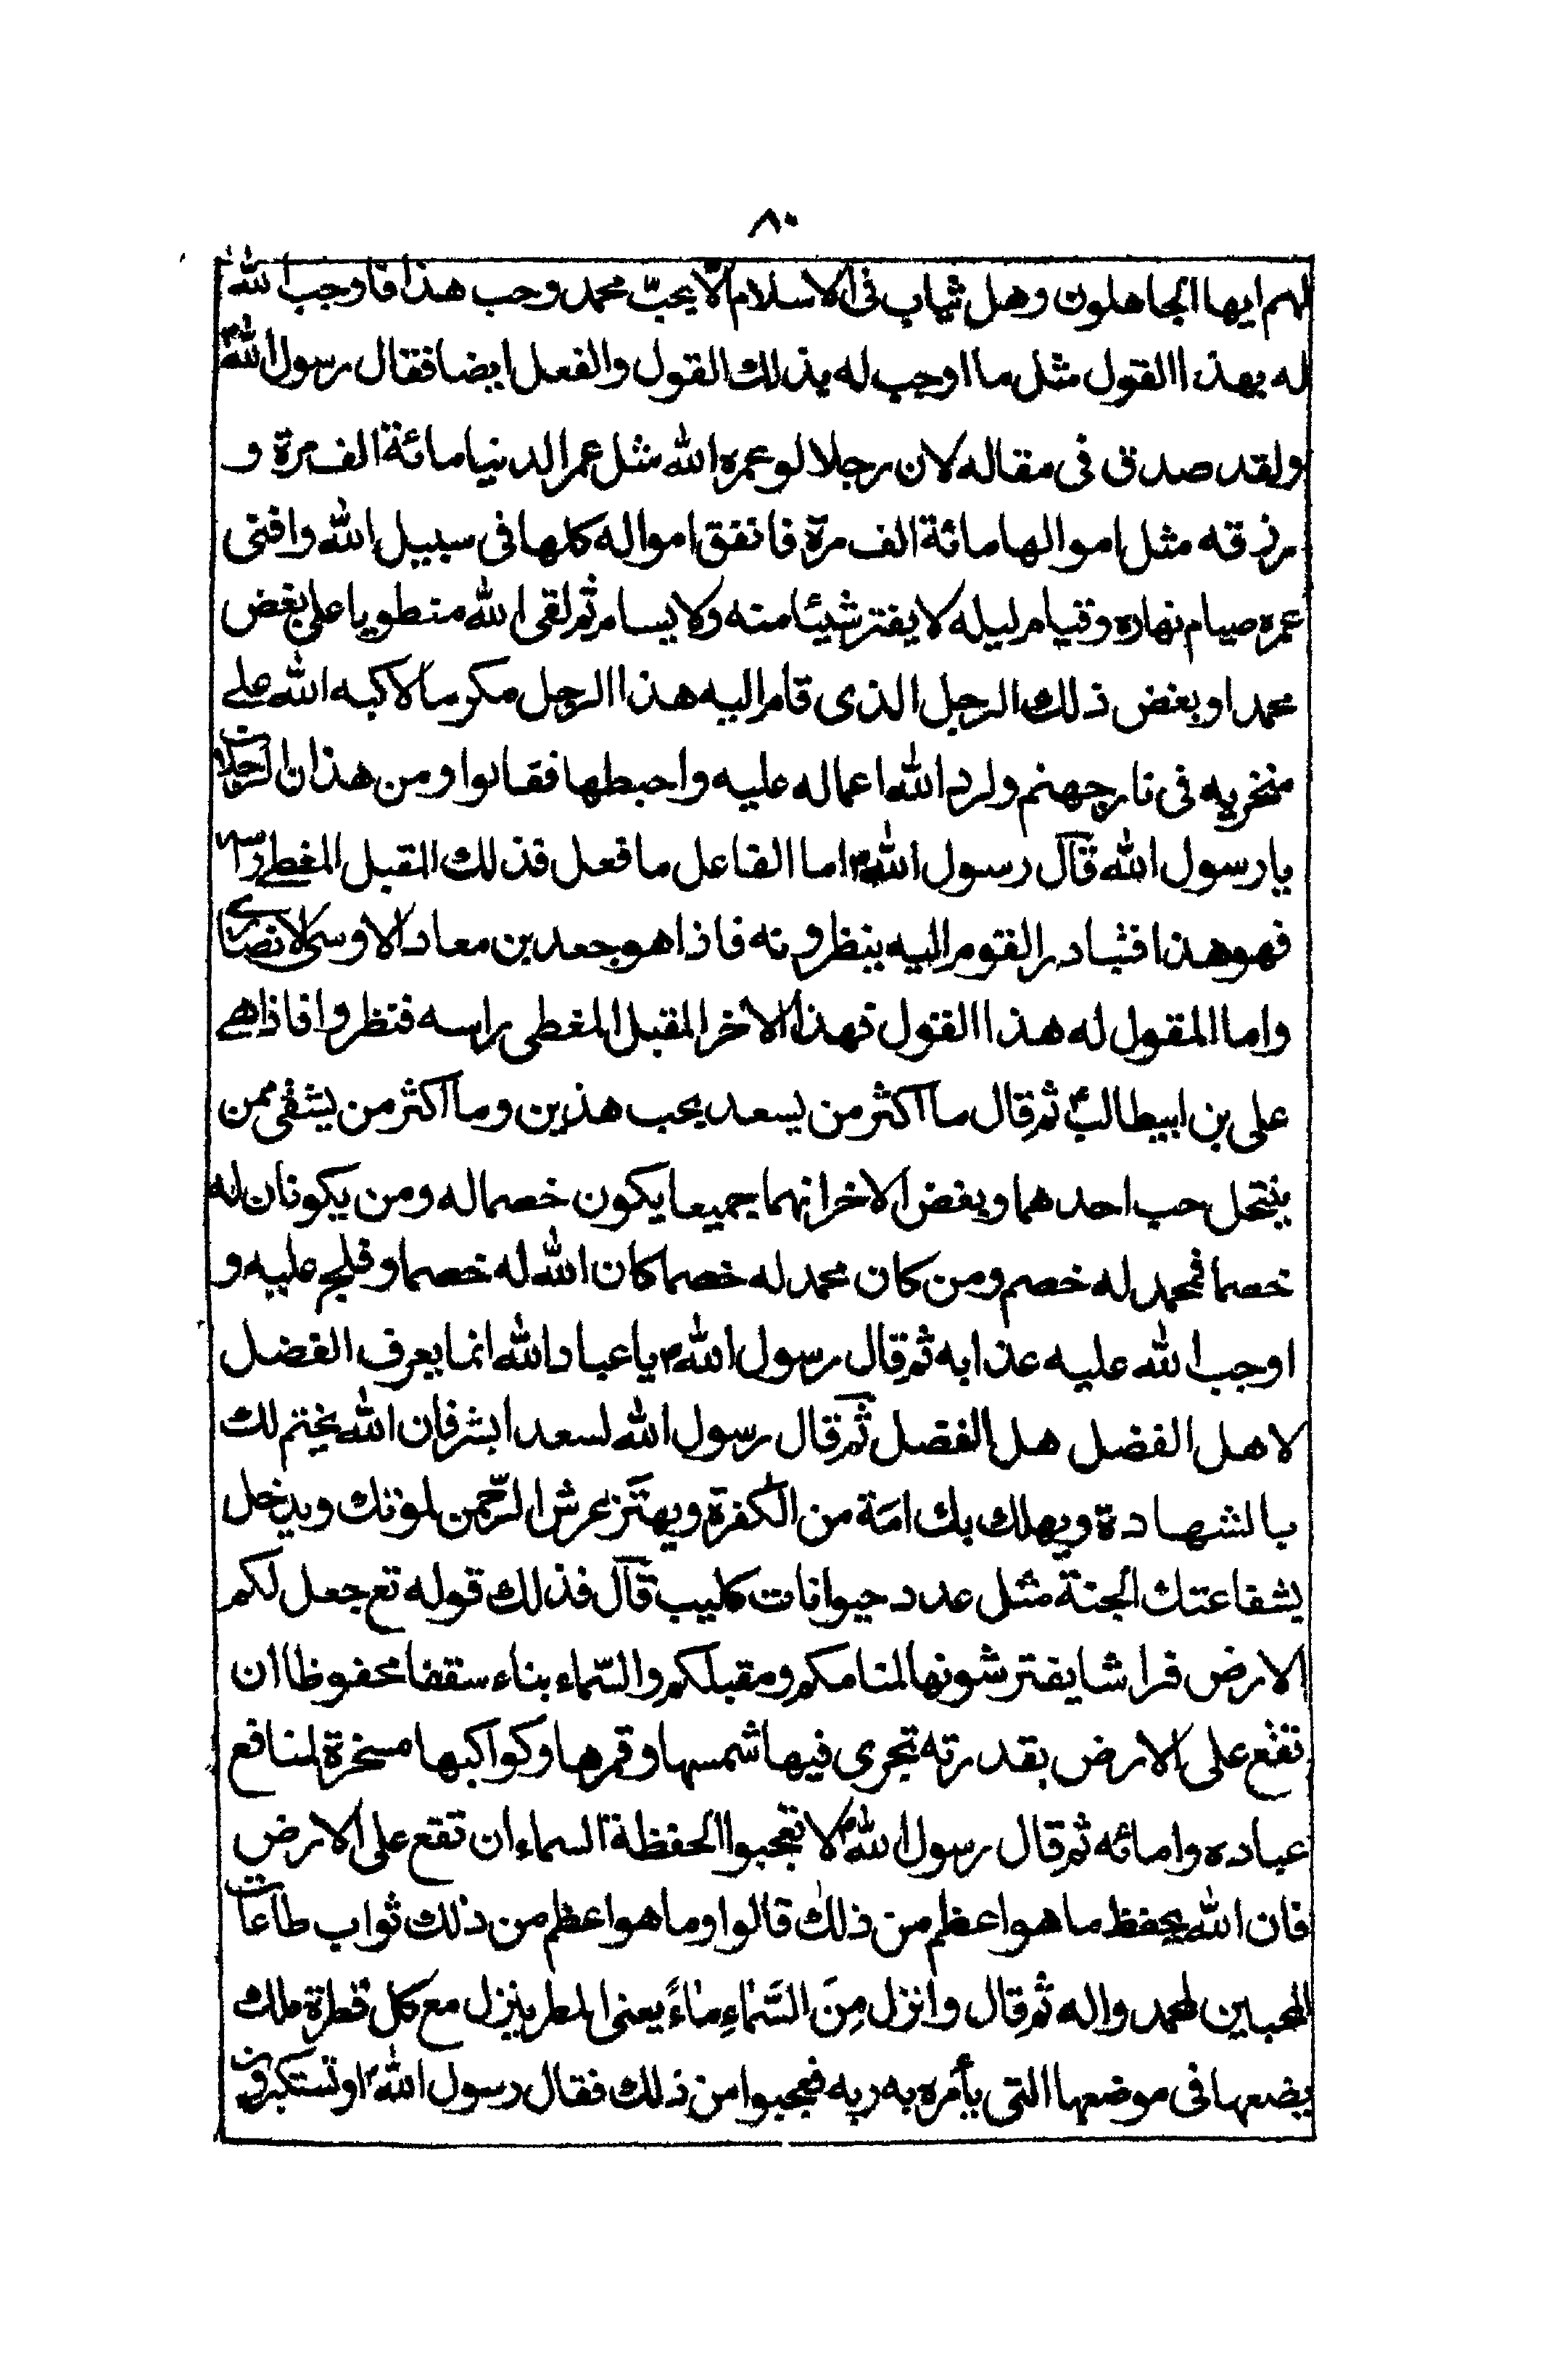 ٨٠
لهم ايها الجاهلون وهل ثياب فى الاسلام الا بحبّ محمد وحب هذا فاوجب الله
له بهذا القول مثل ما اوجب له بذلك القول والفعل ايضا فقال رسول الله
ولقد صدق فى مقاله لان رجلا لو عمره الله مثل عمر الدنيا مائة الف مرة و
رزقه مثل اموالها مائة الف مرة فانفق امواله كلها فى سبيل الله وافنى
عمره صيام نهاره وقيام ليله لا يفتر شيئا منه ولا يسام ثم لقى الله منطويا على بغض
محمد او بغض ذلك الرجل الذى قام اليه هذا الرجل مكرما الا كبه الله على
منخريه فى نار جهنم ولرد الله اعماله عليه واحبطها فقالوا ومن هذان الرجلان
يا رسول الله قال رسول الله ص اما الفاعل ما فعل فذلك المقبل المغطى راسه
فهو هذا فتبادر القوم اليه ينظرونه فاذا هو جعد بن معاد الاوسى الانصارى
واما المقول له هذا القول فهذا الاخر المقبل المغطى راسه فنظروا فاذا هى
على بن ابيطالب ع ثم قال ما اكثر من يسعد بحب هذين وما اكثر من يشقى ممن
ينتحل حب احدهما وبغض الاخر انهما جميعا يكون خصما له ومن يكونان له
خصما فمحمد له خصم ومن كان محمد له خصما كان الله له خصما وفلج عليه و
اوجب الله عليه عذابه ثم قال رسول الله ص يا عباد الله انما يعرف الفضل
لاهل الفضل هل الفضل ثم قال رسول الله لسعد ابشر فان الله يختم لك
بالشهادة ويهلك بك امة من الكفرة ويهتز عرش الرّحمن لموتك ويدخل
بشفاعتك الجنة مثل عدد حيوانات كليب قال فذلك قوله تع جعل لكم
الارض فراشا يفترشونها لمنامكم ومقيلكم والسّماء بناء سقفا محفوظا ان
تقع على الارض بقدرته تجرى فيها شمسها وقمرها وكواكبها مسخرة لمنافع
عباده وامائه ثم قال رسول الله ص لا تعجبوا لحفظة السماء ان تقع على الارض
فان الله يحفظ ما هو اعظم من ذلك قالوا وما هو اعظم من ذلك ثواب طاعات
المحبين لمحمد واله ثم قال وانزل مِنَ السَّمَاءِ مَاءً يعنى المطر ينزل مع كل قطرة ملك
يضعها فى موضعها التى يأمره به ربه فعجبوا من ذلك فقال رسول الله ص او تستكبرون